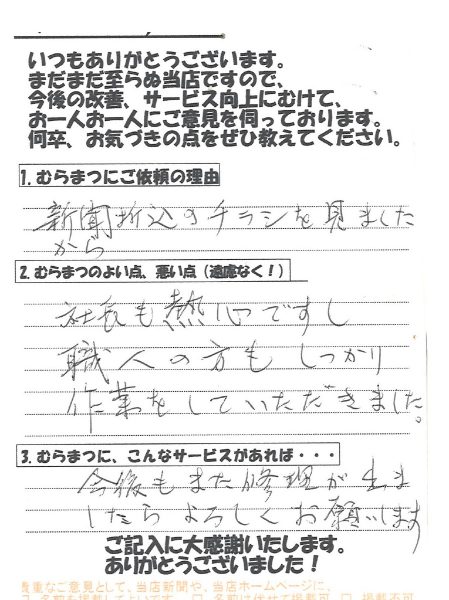 いつもありがとうございます。
まだまだ至らぬ当店ですので、
今後の改善、サービス向上にむけて、
お一人お一人にご意見を伺っております。
何卒、お気づきの点をぜひ教えてください。
1. むらまつにご依頼の理由
新聞折込のチラシを見ました
から
2. むらまつのよい点、悪い点（遠慮なく！）
社長も熱心ですし
職人の方もしっかり
作業をしていただきました。
3. むらまつに、こんなサービスがあれば・・・
今後もまた修理が出ま
したらよろしくお願いします
ご記入に大感謝いたします。
ありがとうございました！
貴重なご意見として、当店新聞や、当店ホームページに、
□ 名前も掲載してよいです。 □ 名前は伏せて掲載可 □ 掲載不可